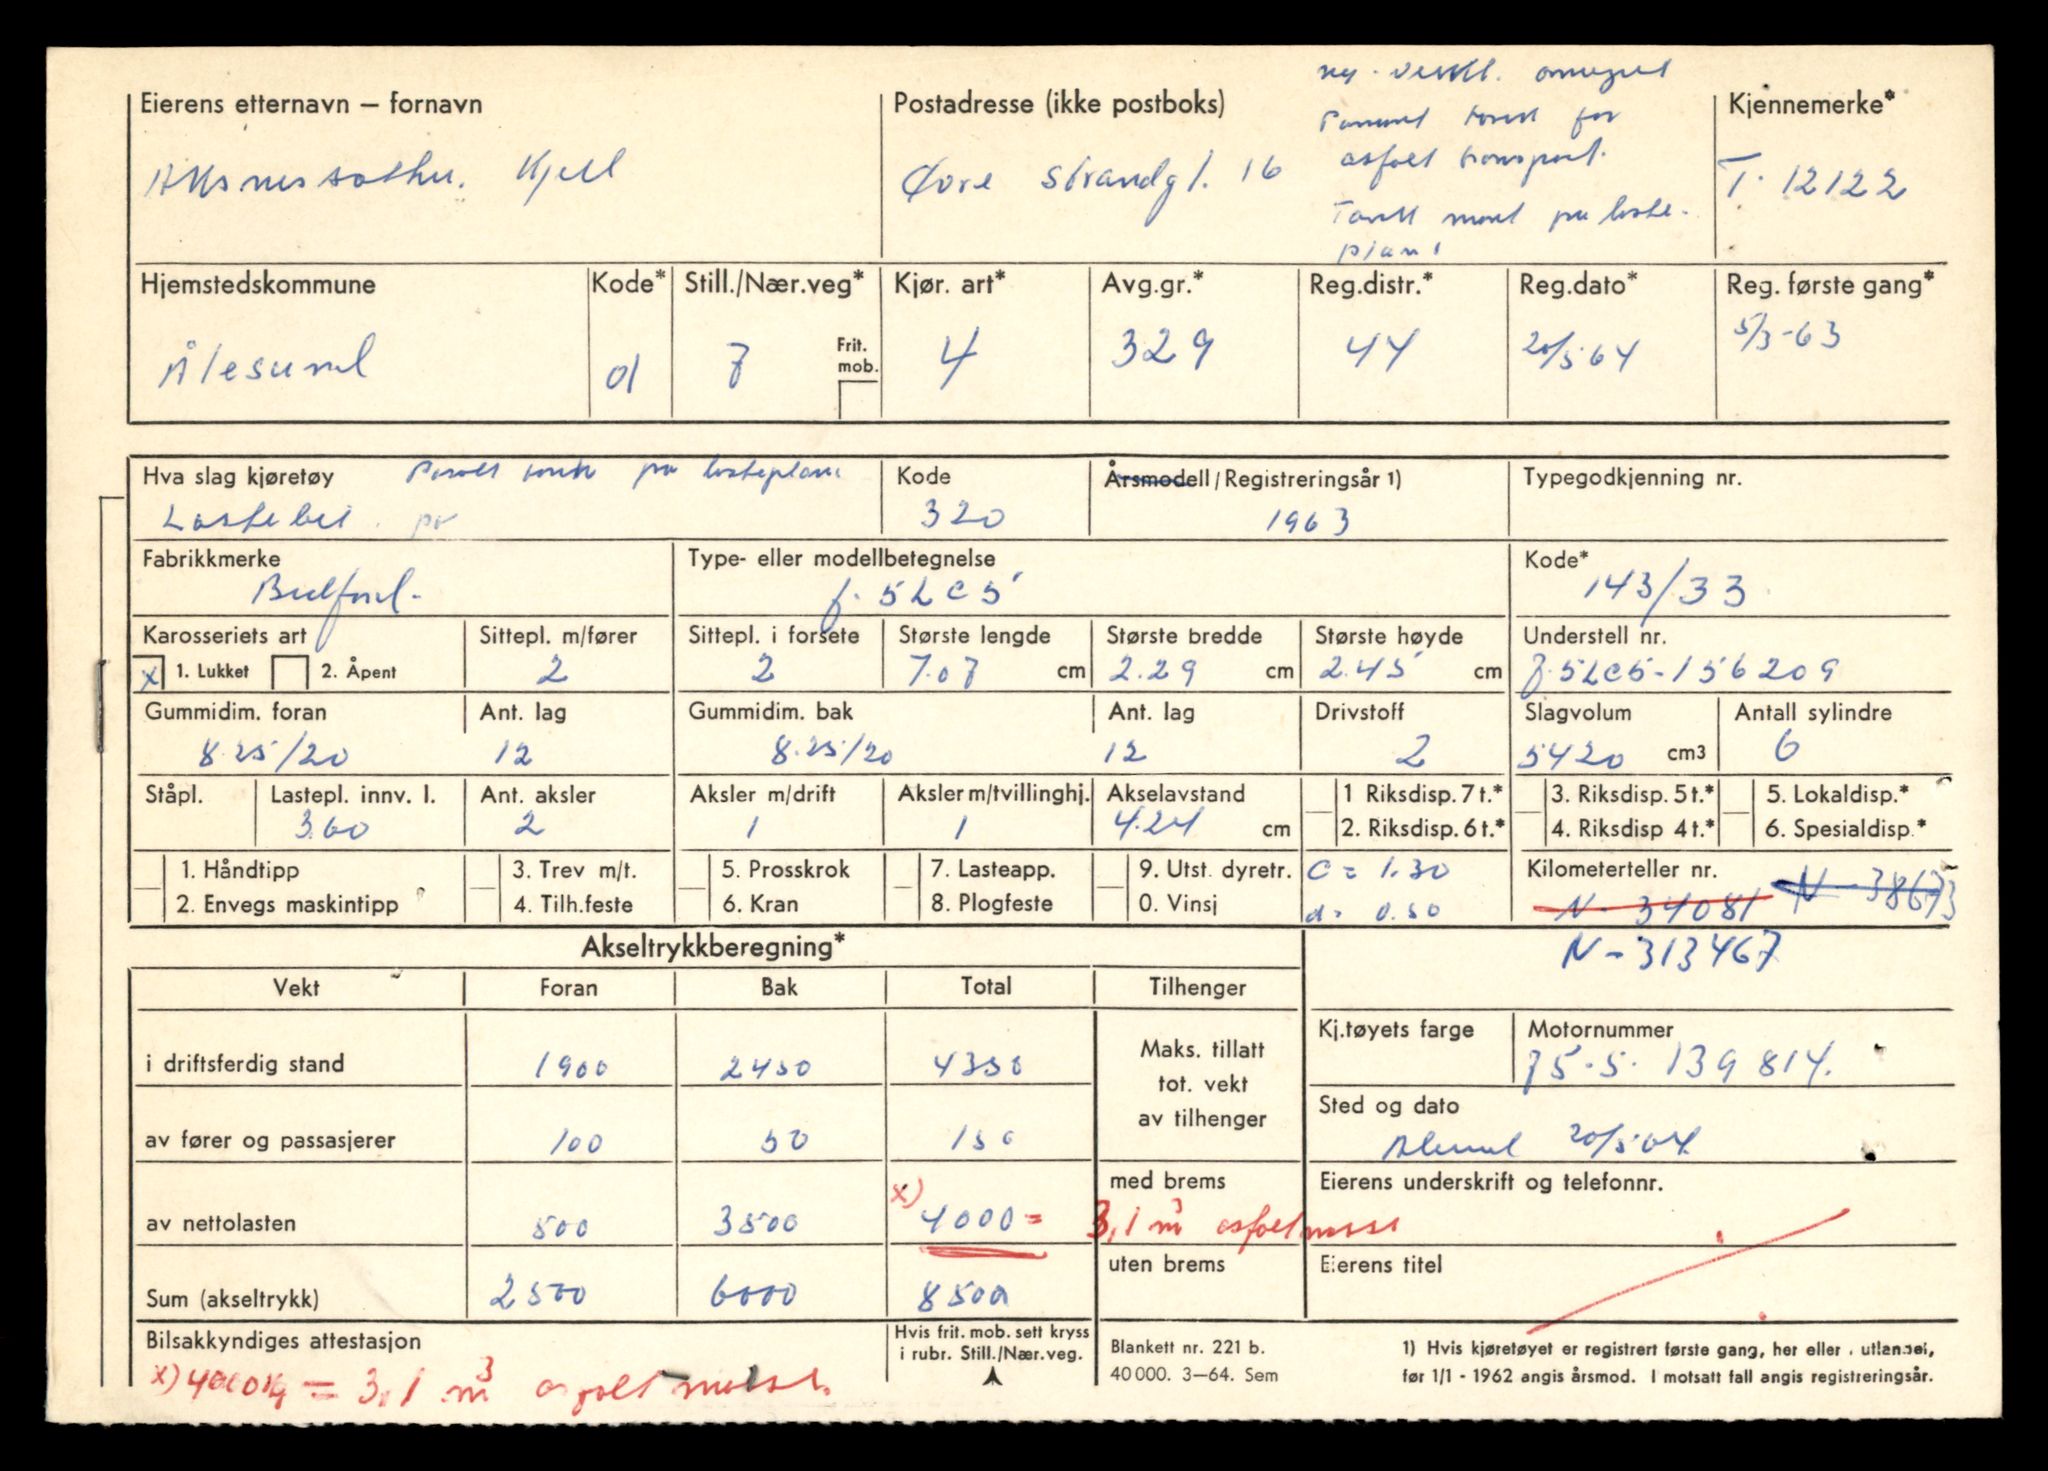 Eierens etternavn – fornavn
Postadresse (ikke postboks)
Kjennemerke*
Kjell
Øvre Strandgt. 16
for
asfalt transport.
T. 12122
Hjemstedskommune
Kode*
Still./Nær.veg*
Kjør. art*
Avg.gr.*
Reg.distr.*
Reg.dato*
Reg. første gang*
Ålesund
01
7
Frit. mob.
4
329
44
20/5 64
5/3-63
Hva slag kjøretøy
på lasteplan.
Lastebil.
Kode
320
Årsmodell/Registreringsår 1)
1963
Typegodkjenning nr.
Fabrikkmerke
Bedford.
Type- eller modellbetegnelse
J. 5LC5
Kode*
143/33
Karosseriets art
x 1. Lukket 2. Åpent
Sittepl. m/fører
2
Sittepl. i forsete
2
Største lengde
7.07 cm
Største bredde
2.29 cm
Største høyde
2.45 cm
Understell nr.
J.5LC5-156209
Gummidim. foran
8.25/20
Ant. lag
12
Gummidim. bak
8.25/20
Ant. lag
12
Drivstoff
2
Slagvolum
5420 cm3
Antall sylindre
6
Ståpl.
Lastepl. innv. l.
3.60
Ant. aksler
2
Aksler m/drift
1
Aksler m/tvillinghj.
1
Akselavstand
4.24 cm
1 Riksdisp. 7 t.*
2. Riksdisp. 6 t.*
3. Riksdisp. 5 t.*
4. Riksdisp 4 t.*
5. Lokaldisp.*
6. Spesialdisp.*
1. Håndtipp
2. Envegs maskintipp
3. Trev m/t.
4. Tilh.feste
5. Prosskrok
6. Kran
7. Lasteapp.
8. Plogfeste
9. Utst. dyretr.
0. Vinsj
C = 1.30
d = 0.50
Kilometerteller nr.
N- 34081 N-38673
N-313467
Akseltrykkberegning*
Vekt Foran Bak Total Tilhenger
i driftsferdig stand 1900 2450 4350
av fører og passasjerer 100 50 150
av nettolasten 500 3500 x) 4000 = 3,1 m3 asfaltmasse
Sum (akseltrykk) 2500 6000 8500
Maks. tillatt
tot. vekt
av tilhenger
med brems
uten brems
Kj.tøyets farge
Motornummer
J5.5. 139814.
Sted og dato
20/5 64
Eierens underskrift og telefonnr.
Eierens titel
Bilsakkyndiges attestasjon
x) 4000 kg = 3,1 m3 asfalt masse.
Hvis frit. mob. sett kryss
i rubr. Still./Nær.veg.
Blankett nr. 221 b.
40 000. 3–64. Sem
1) Hvis kjøretøyet er registrert første gang, her eller i utlandet,
før 1/1 - 1962 angis årsmod. I motsatt fall angis registreringsår.